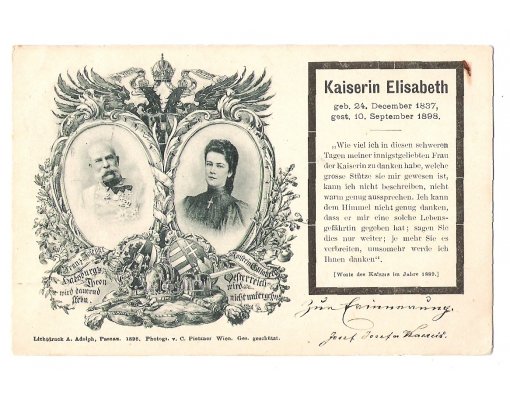 Habsburgs
Thron
wird dauernd
stehn.
Oesterreich
wird
nicht untergehn
Lichtdruck A. Adolph, Passau. 1898. Photogr. v. C. Pietzner Wien. Ges. geschützt.
Kaiserin Elisabeth
geb. 24. December 1837,
gest. 10. September 1898.
„Wie viel ich in diesen schweren
Tagen meiner innigstgeliebten Frau
der Kaiserin zu danken habe, welche
grosse Stütze sie mir gewesen ist,
kann ich nicht beschreiben, nicht
warm genug aussprechen. Ich kann
dem Himmel nicht genug danken,
dass er mir eine solche Lebens-
gefährtin gegeben hat; sagen Sie
dies nur weiter; je mehr Sie es
verbreiten, umsomehr werde ich
Ihnen danken“.
[Worte des Kaisers im Jahre 1889.]
Zur Erinnerung.
Josef